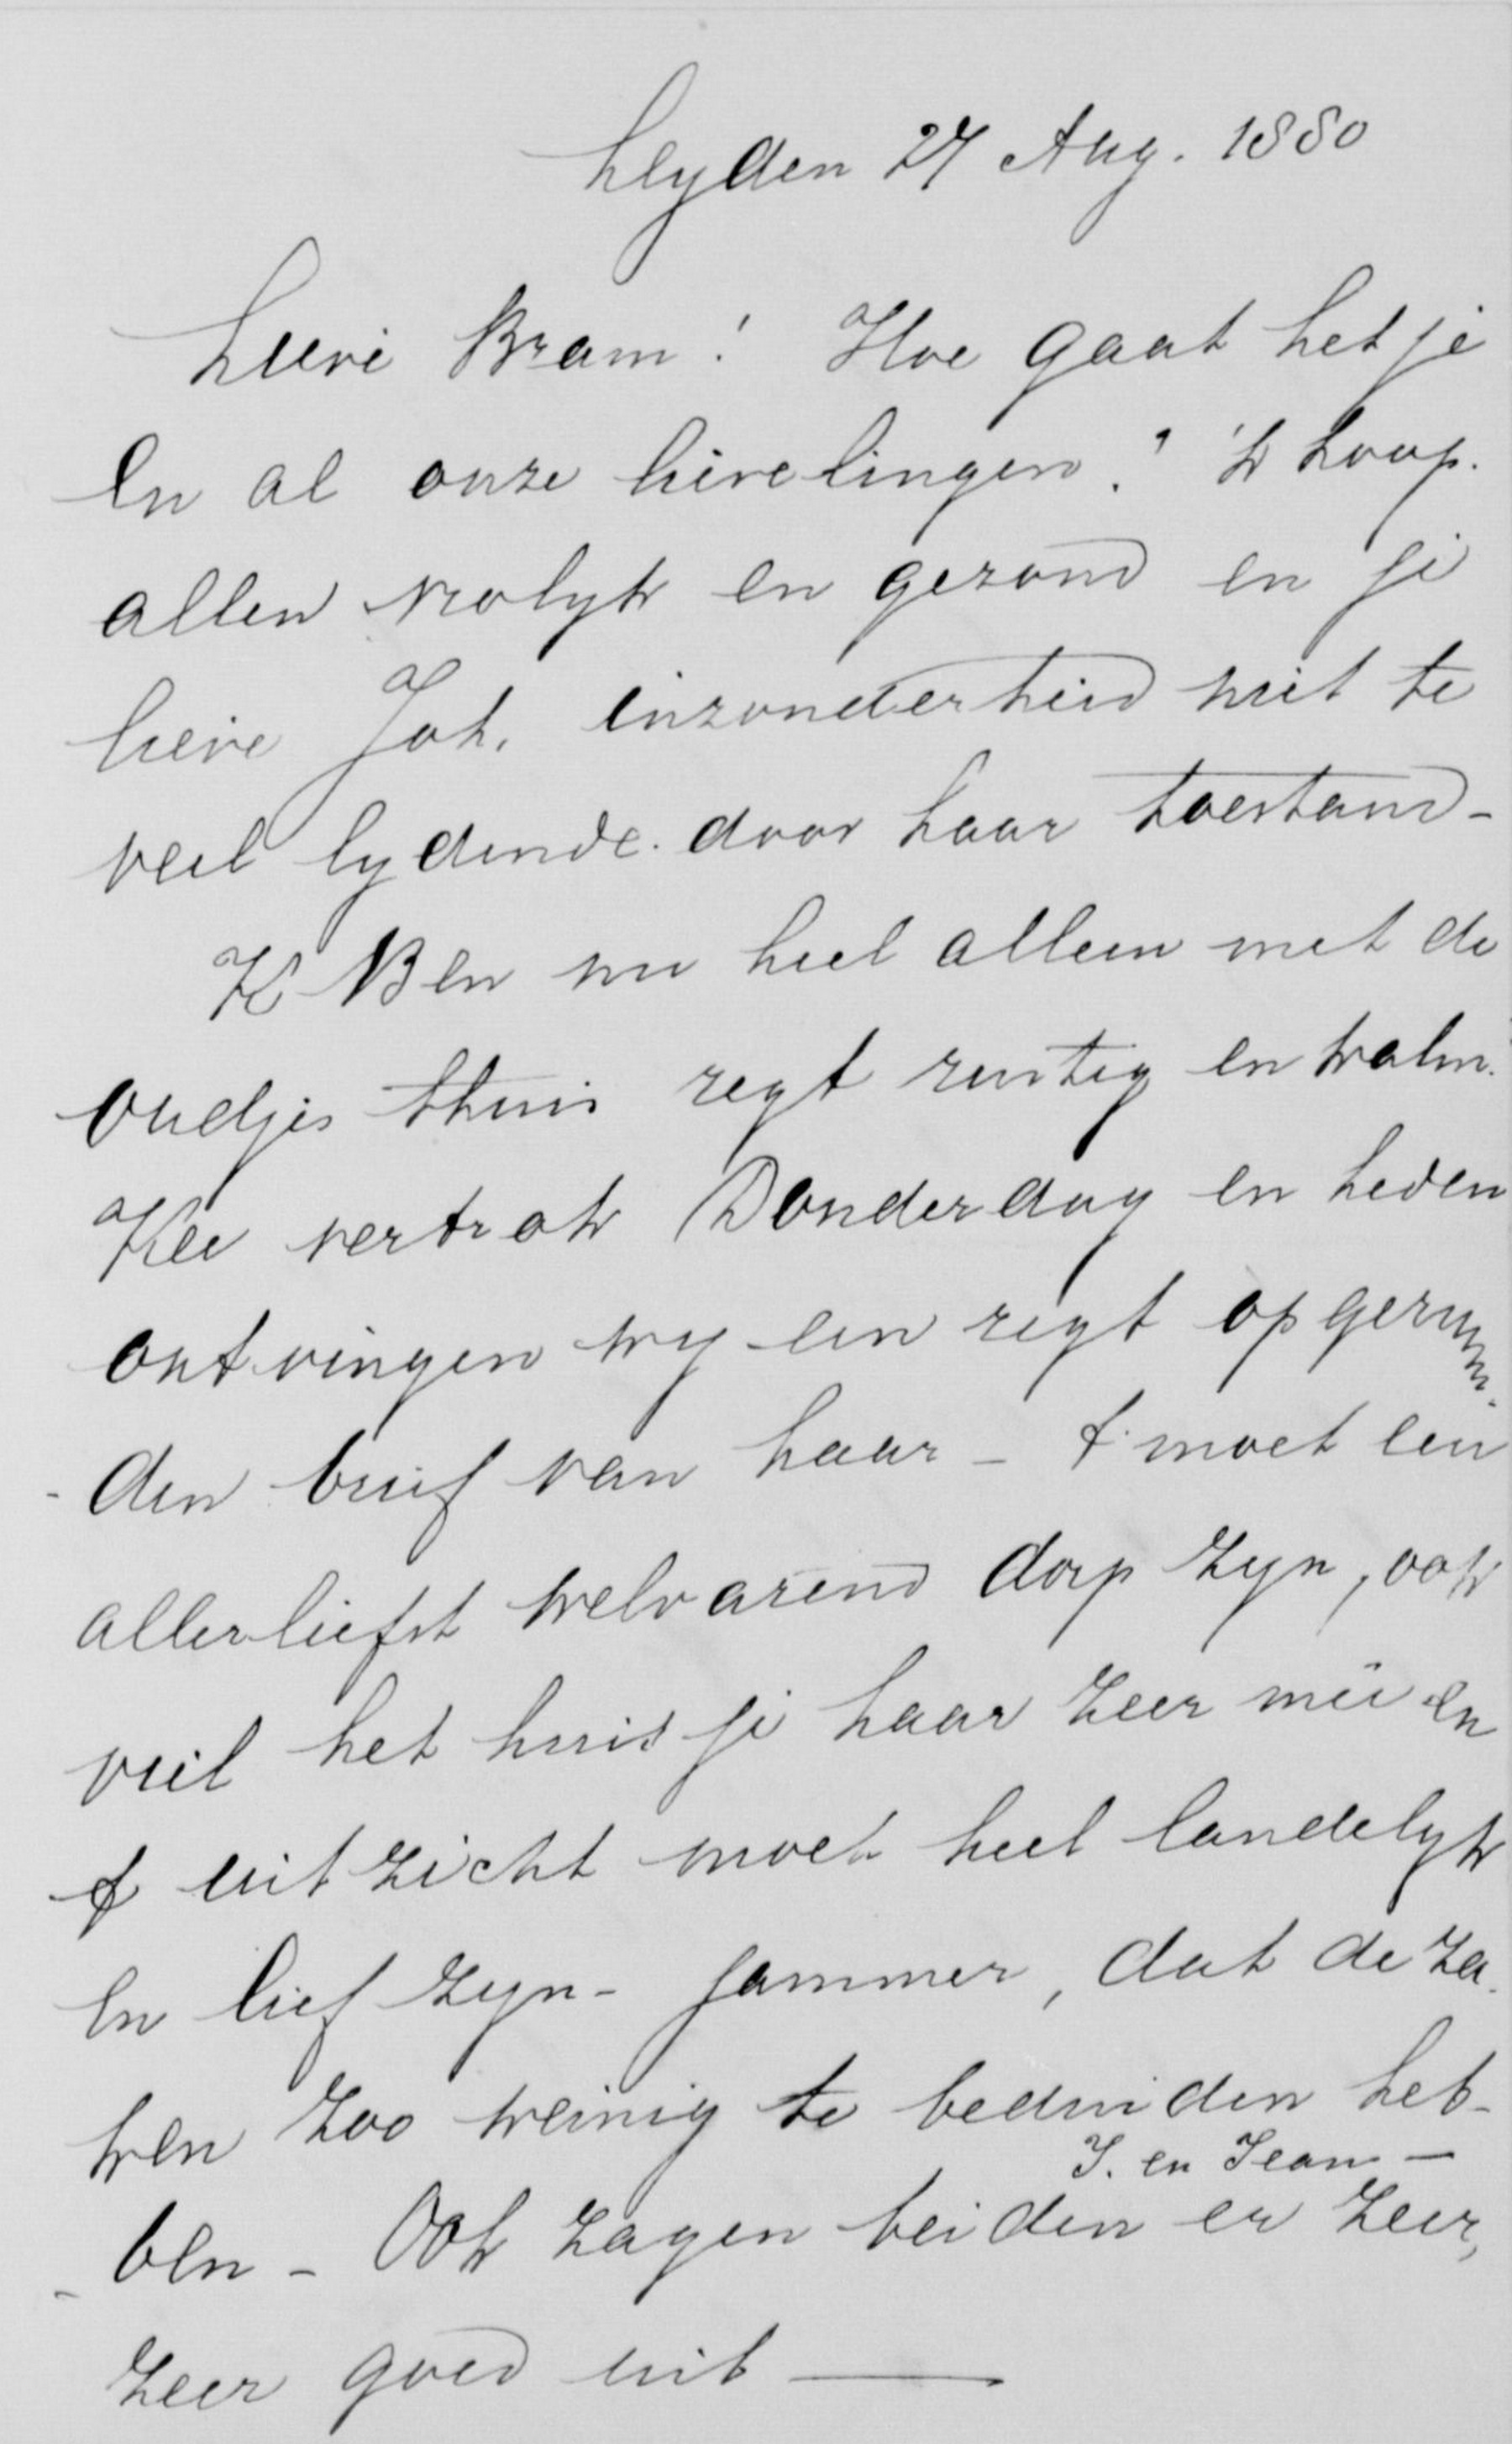 Leyden 27 Aug. 1880
Lieve Bram! Hoe gaat het je
en al onze lievelingen? 'k hoop.
allen vrolyk en gezond en je
lieve Joh. inzonderheid niet te
veel lydende. door haar toestand -
K Ben nu heel alleen met de
oudjes thuis regt rustig en kalm.
Kee vertrok Donderdag en heden
ontvingen wy een regt opgeruim-
-den brief van haar - t moet een
allerliefst welvarend dorp zyn, ook
viel het huisje haar zeer meê en
t uitzicht moet heel landelyk
en lief zyn - Jammer, dat de za-
ken zoo weinig te beduiden heb-
J. en Jean —
-ben - Ook zagen beiden er zeer,
zeer goed uit —